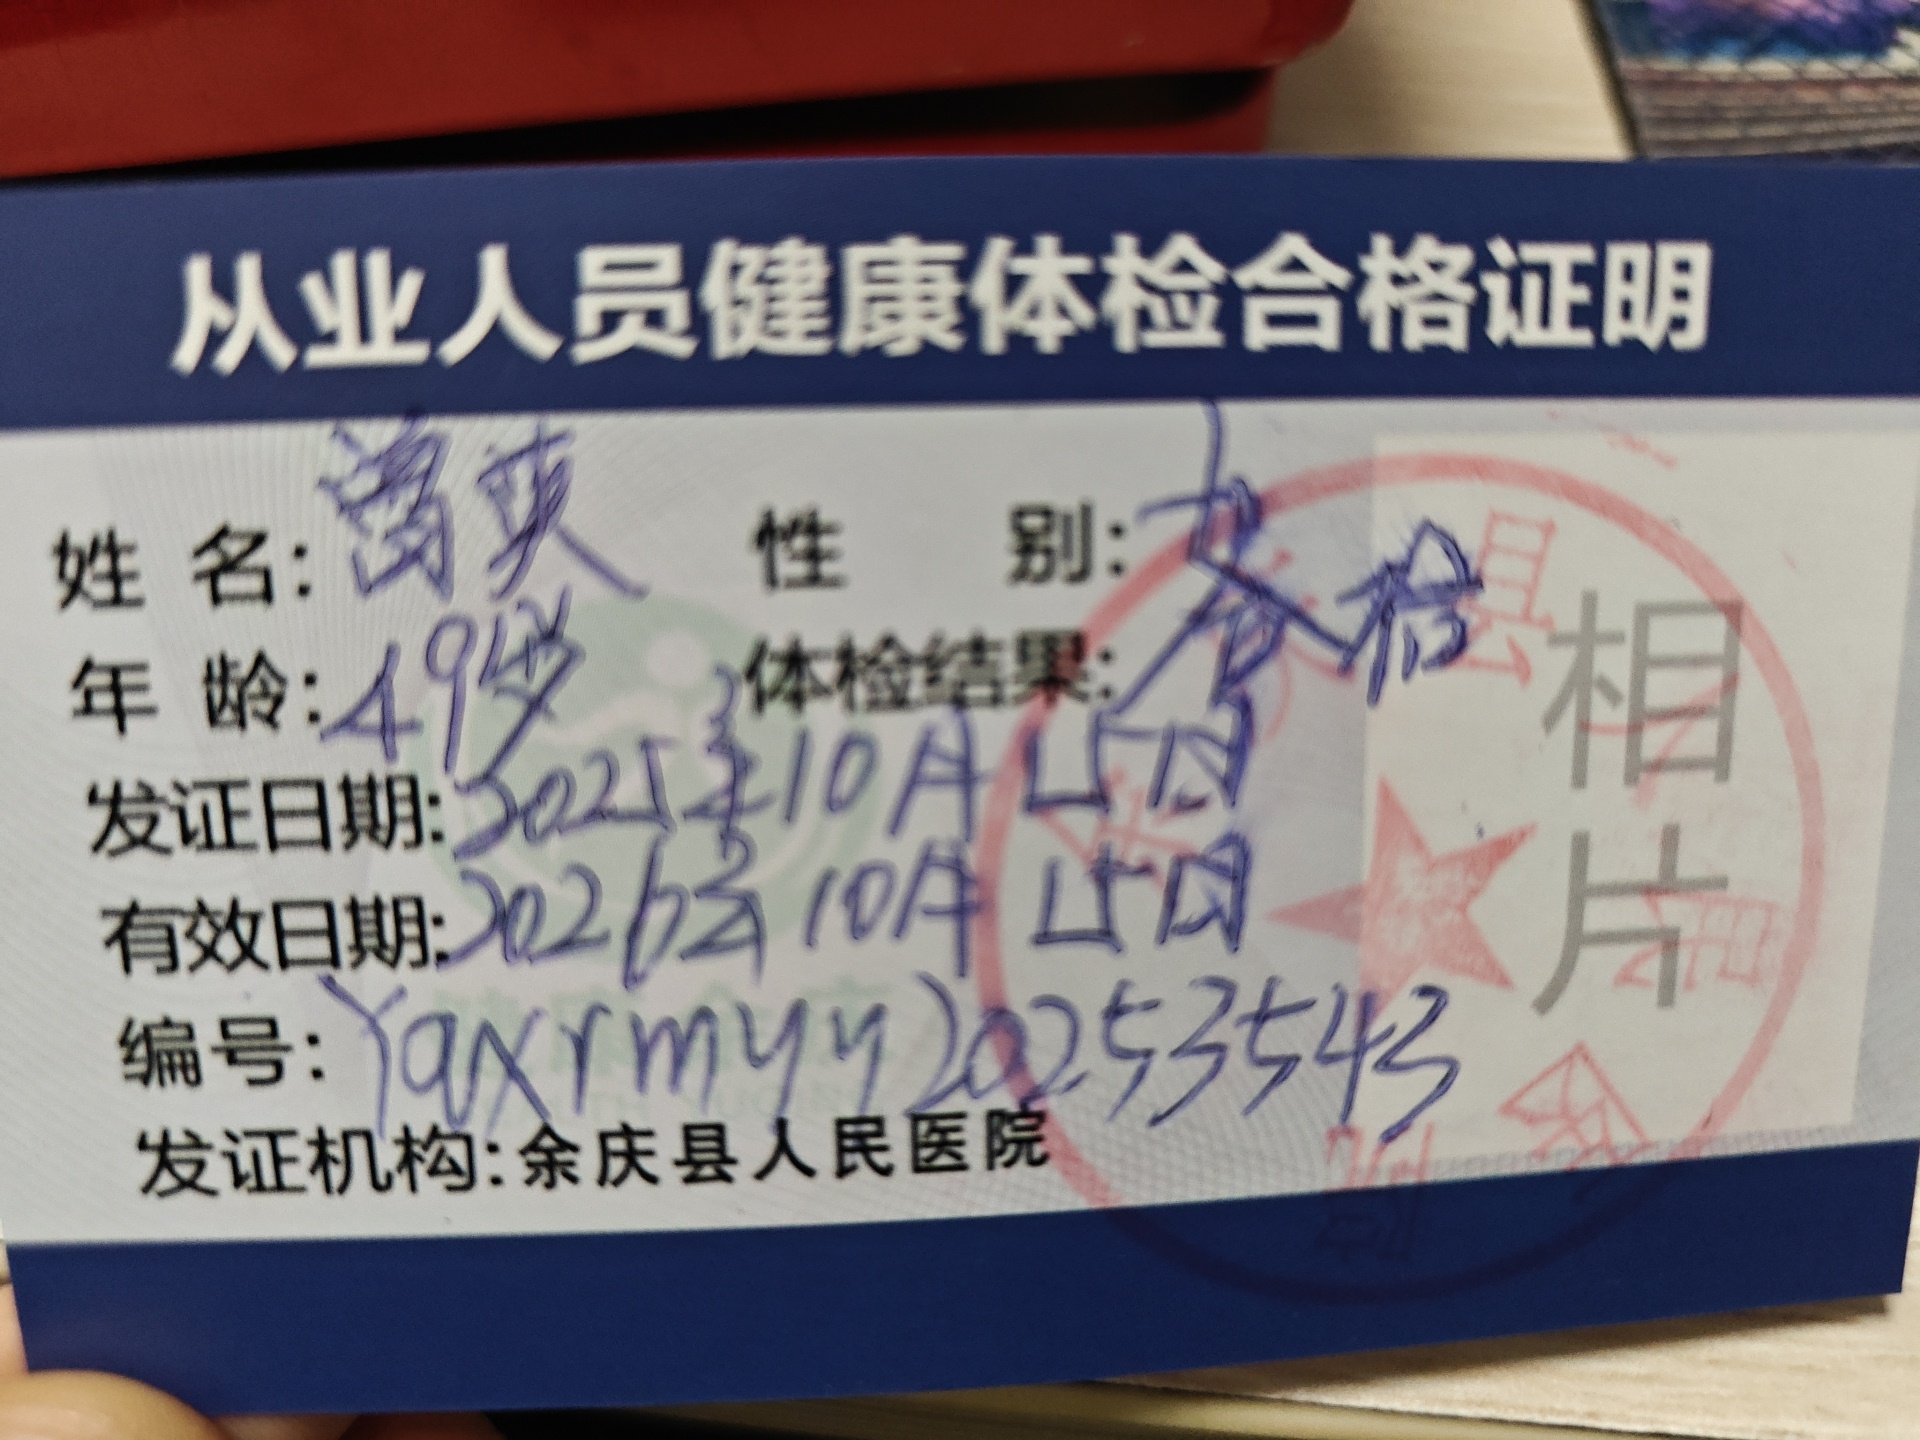 从业人员健康体检合格证明
姓名: 性别: 女
年龄: 49岁 体检结果: 合格
发证日期: 2025年10月15日
有效日期: 2026年10月15日
编号: Yqxrmyy20253543
发证机构: 余庆县人民医院
相片